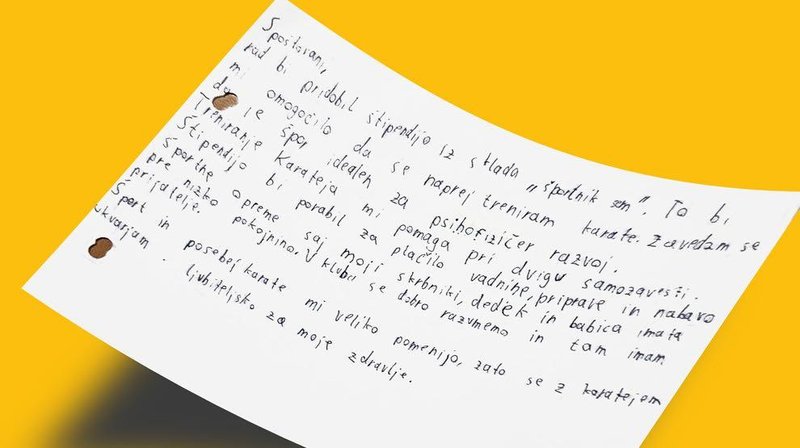 Spoštovani,
rad bi pridobil štipendijo iz sklada „športnik sem". To bi
mi omogočilo da se naprej treniram karate. Zavedam se
da je špor idealen za psihofizičen razvoj.
Treniranje Karateja mi pomaga pri dvigu samozavesti.
Štipendijo bi porabil za plačilo vadnine, priprave in nabavo
športne opreme saj moji skrbniki, dedek in babica imata
pre nizko pokojnino. V klubu se dobro razumemo in tam imam
prijatelje.
Šport in posebej karate mi veliko pomenijo, zato se z karatejem
ukvarjam ljubiteljsko za moje zdravlje.